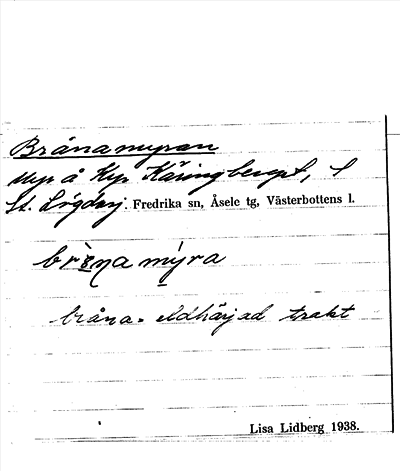 Brånamyran
Myr å Krp Käringberget,
St. Lögdaj. Fredrika sn, Åsele tg, Västerbottens l.
brånₐ mýra
bråna = eldhärjad trakt
Lisa Lidberg 1938.